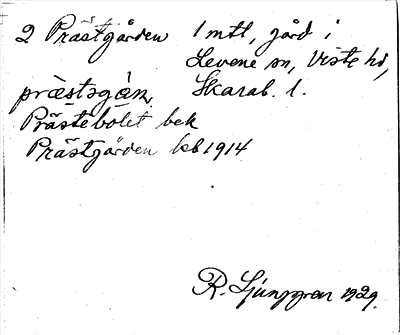 2 Prästgården 1 mtl, gård i
Levene sn, Viste hd,
præ̀stsgáɳ. Skarab. l.
Prästebolet bek
Prästgården kb 1914
R. Ljunggren 1929.